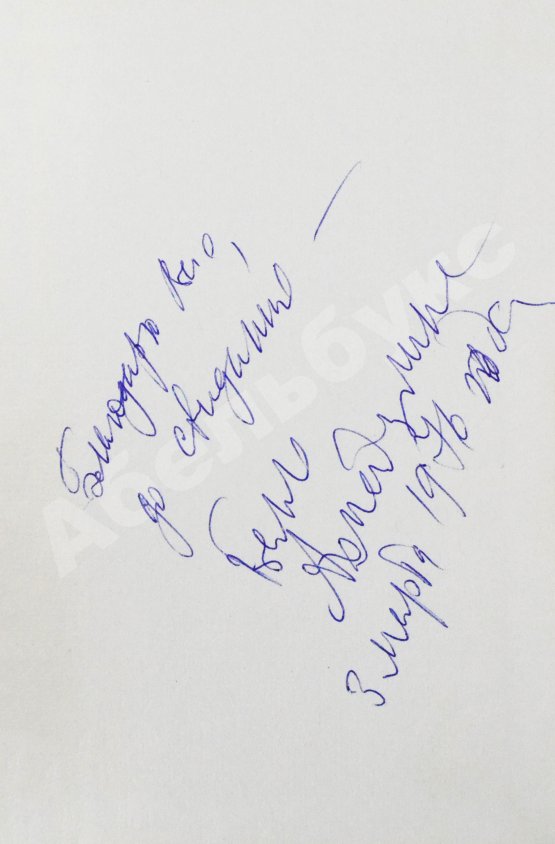 Благодарю Вас,
до свидания —
Белла
Ахмадулина
3 марта 1976 года
Абельбукс